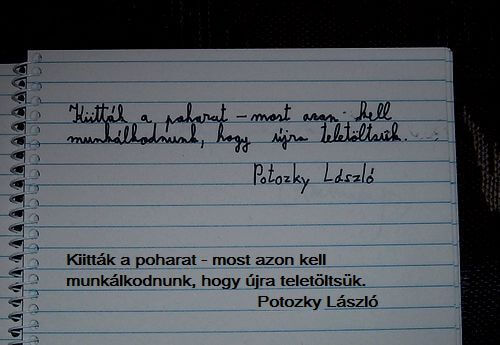 Kiitták a poharat – most azon kell
munkálkodnunk, hogy újra teletöltsük.
Potozky László
Kiitták a poharat - most azon kell
munkálkodnunk, hogy újra teletöltsük.
Potozky László